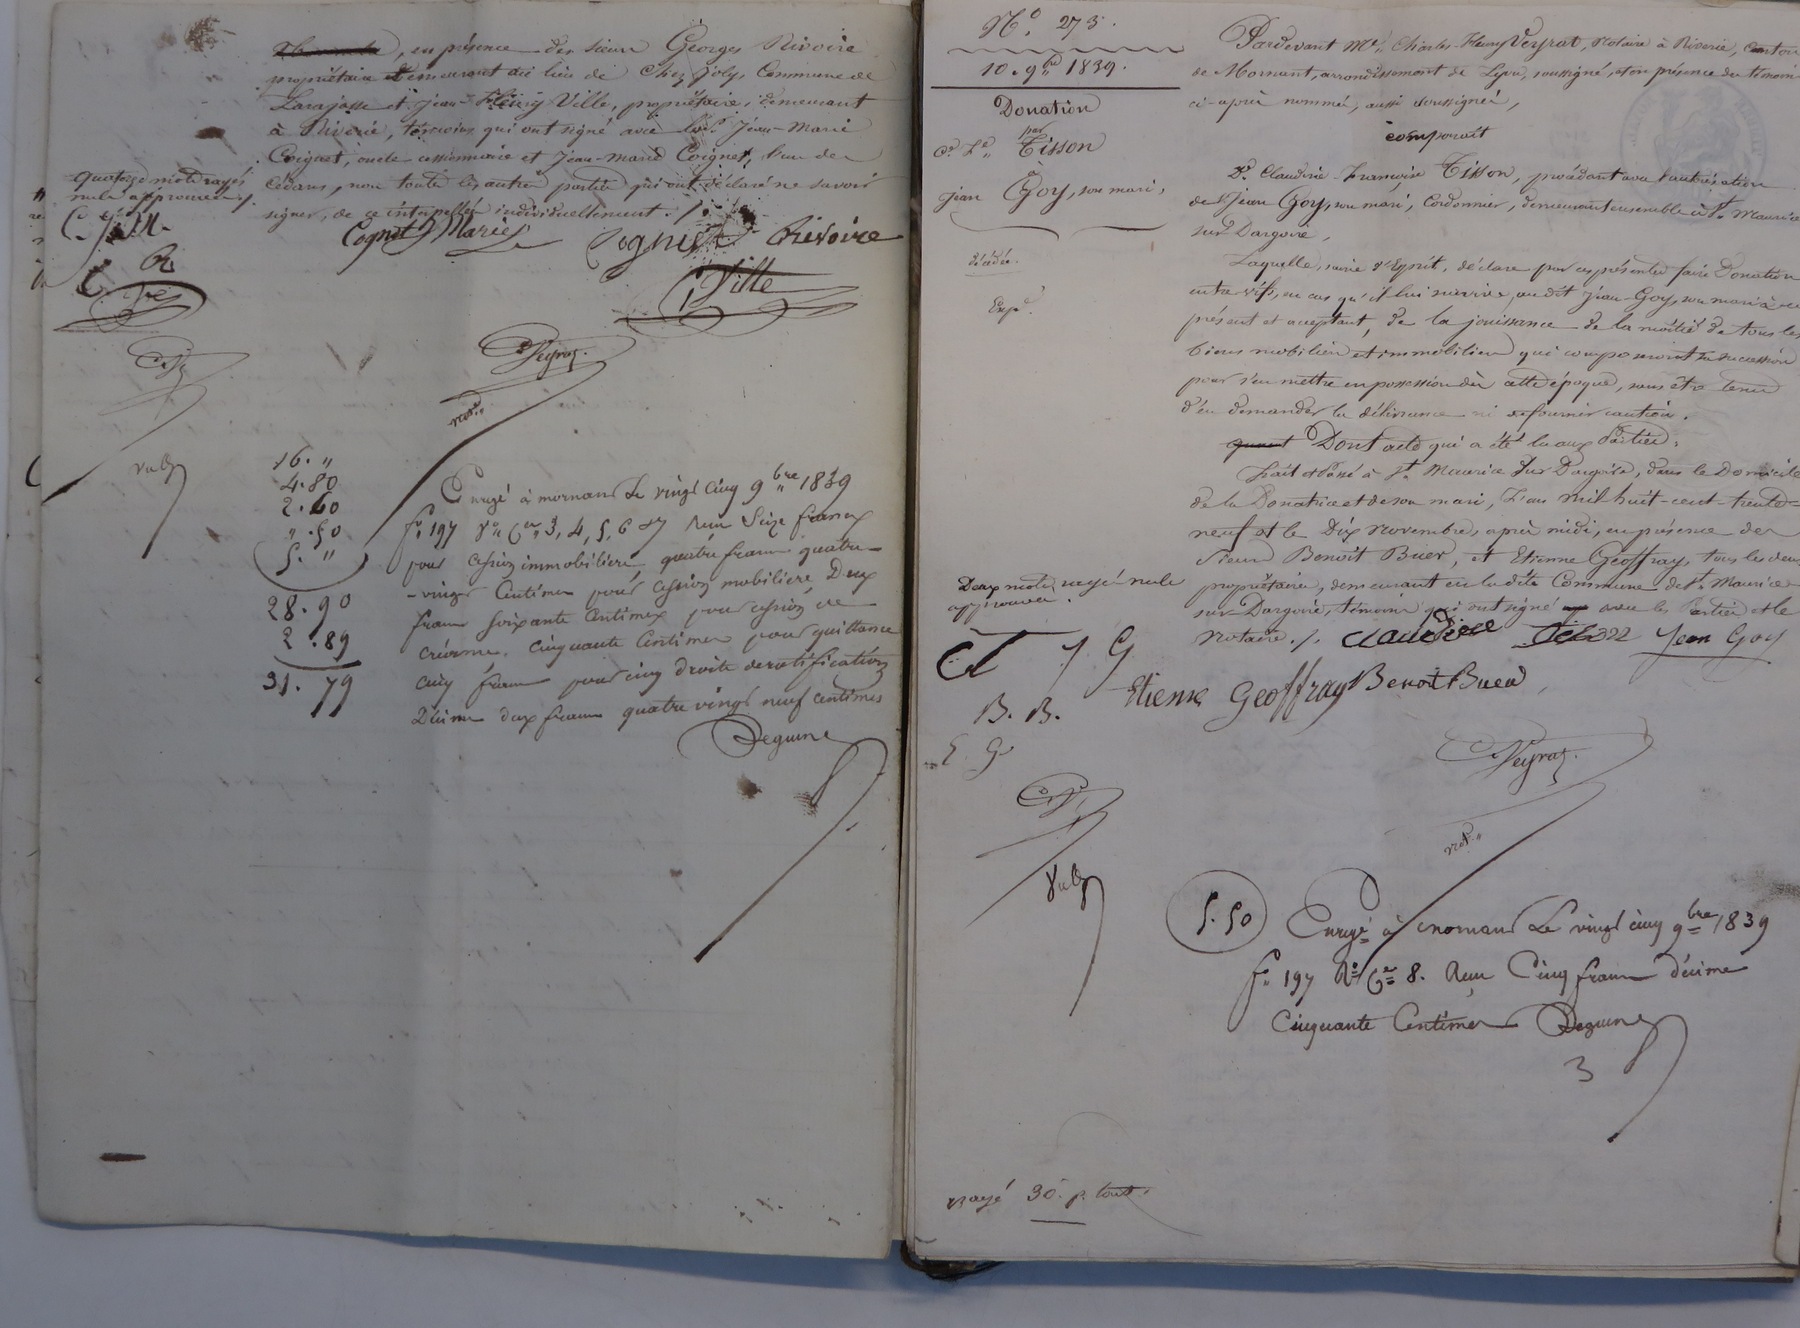 , en présence des sieurs Georges Rivoire
propriétaire demeurant au lieu de chez Joly, Commune de
Larajasse et Jean-Fleury Ville, propriétaire, demeurant
à Riverie, témoins qui ont signé avec led. Jean-Marie
Coignet, oncle cessionnaire et Jean-Marie Coignet, l'un des
cédans, non toutes les autres parties qui ont déclaré ne savoir
signer, de ce interpellées individuellement ./.
quatorze mots rayés
nuls approuvés.
Cognet J Marie Cognet Rivoire
Ville
CVeyrat.
not.
16. "
4.80
2.60
".50
5. "
28.90
2.89
31.79
Enregé à mornant Le vingt cinq 9bre 1839
fo 197 vo Ces 3, 4, 5, 6 et 7 Reçu Seize francs
pour cession immobilière, quatre francs quatre
-vingt Centimes pour cession mobilière, Deux
francs soixante Centimes pour cession de
créance, cinquante Centimes pour quittance
cinq francs pour cinq droits de ratification
Décime deux francs quatre vingt neuf centimes
Deguine
No. 273.
10. 9bre 1839.
Donation
par
Tisson
à
Jean Goy, son mari,
décédée.
Expé.
Pardevant Me. Charles-Fleury Veyrat, Notaire à Riverie, Canton
de Mornant, arrondissement de Lyon, soussigné, et en présence des témoins
ci-après nommés, aussi soussignés,
comparait
De. Claudine-Françoise Tisson, procédant avec l'autorisation
de Sr. Jean Goy, son mari, Cordonnier, demeurant ensemble à St. Maurice
sur Dargoire,
Laquelle, saine d'Esprit, déclare par ces présentes faire Donation
entre-vifs, en cas qu'il lui survive, au dit Jean Goy, son mari à ce
présent et acceptant, de la jouissance de la moitié de tous les
biens mobiliers et immobiliers qui composeront sa succession
pour s'en mettre en possession dès cette époque, sans être tenu
d'en demander la délivrance ni de fournir caution.
Dont acte qui a été lu aux Parties.
Fait et Passé à St. Maurice sur Dargoire, dans le Domicile
de la Donatrice et de son mari, L'an mil huit-cent-trente-
neuf et le Dix Novembre, après midi, en présence des
sieurs Benoît Buer, et Etienne Geoffray, tous les deux
propriétaires, demeurant en la dite Commune de St. Maurice
sur Dargoire, témoins qui ont signé avec les Parties et le
Notaire ./.
Deux mots rayés nuls
approuvés.
Jean Goy
CT J G
Etienne Geoffray Benoit Buer
B. B.
E G
CVeyrat.
not.
5.50
Enregé à mornant Le vingt cinq 9bre 1839
fo 197 Ro Ce 8. Reçu Cinq francs décime
Cinquante Centimes Deguine
3
payé 30. p. tout.